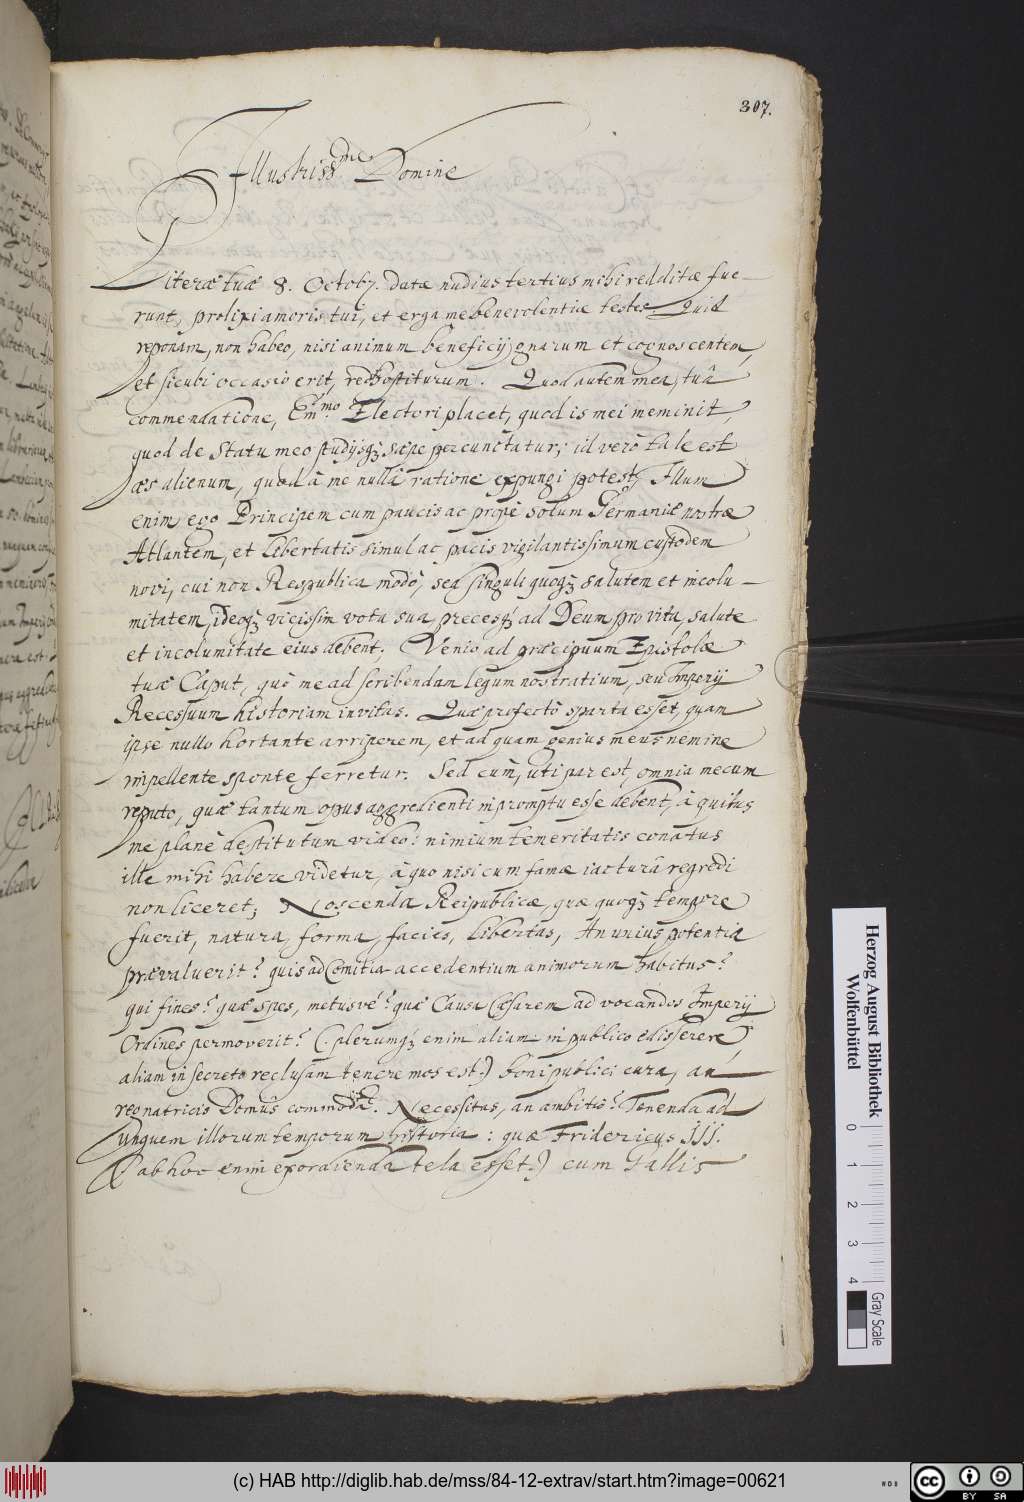 307.
Illustriss.me Domine
Literæ tuæ 8. Octob. datæ nudius tertius mihi redditæ fue-
runt, prolixi amoris tui, et erga me benevolentiæ testes. Quid
reponam, non habeo, nisi animum beneficij gnarum et cognoscentem,
et sicubi occasio erit, redhostiturum. Quod autem mea, tuâ
commendatione, Em.mo Electori placet, quod is mei meminit,
quod de statu meo studijsq; sæpe percunctatur; id verò tale est
æs alienum, quod à me nullâ ratione expungi potest. Illum
enim ego Principem cum paucis ac propè solum Germaniæ nostræ
Atlantem, et libertatis simul ac pacis vigilantissimum custodem
novi, cui non Respublica modò, sed singuli quoq; salutem et incolu-
mitatem, ideoq; vicissim vota sua, precesq; ad Deum pro vita, salute
et incolumitate eius debent. Venio ad præcipuum Epistolæ
tuæ Caput, quò me ad scribendam legum nostratium, seu Imperij
Recessuum historiam invitas. Quæ profectò sparta esset, quam
ipse nullo hortante arriperem, et ad quam genius meus nemine
impellente sponte ferretur. Sed cùm, uti par est, omnia mecum
reputo, quæ tantum opus aggredienti in promptu esse debent, à quibus
me planè destitutum video: nimium temeritatis conatus
ille mihi habere videtur, à quo nisi cum famæ iacturâ regredi
non liceret; Noscenda Reipublicæ, quæ quoq; tempore
fuerit, natura, forma, facies, libertas, An unius potentia
prævaluerit? quis ad Comitia accedentium animorum habitus?
qui fines? quæ spes, metusvé? quæ Causa Cæsarem ad vocandos Imperij
Ordines permoverit? (plerumq; enim aliam in publico edisserere,
aliam in secreto reclusam tenere mos est.) boni publici cura, an
regnatricis Domûs commoda. Necessitas, an ambitio? Tenenda ad
unguem illorum temporum historia: quæ Fridericus III.
(ab hoc enim exordienda tela esset.) cum Gallis
Herzog August Bibliothek
Wolfenbüttel
0 1 2 3 4
Gray Scale
(c) HAB http://diglib.hab.de/mss/84-12-extrav/start.htm?image=00621
cc BY SA